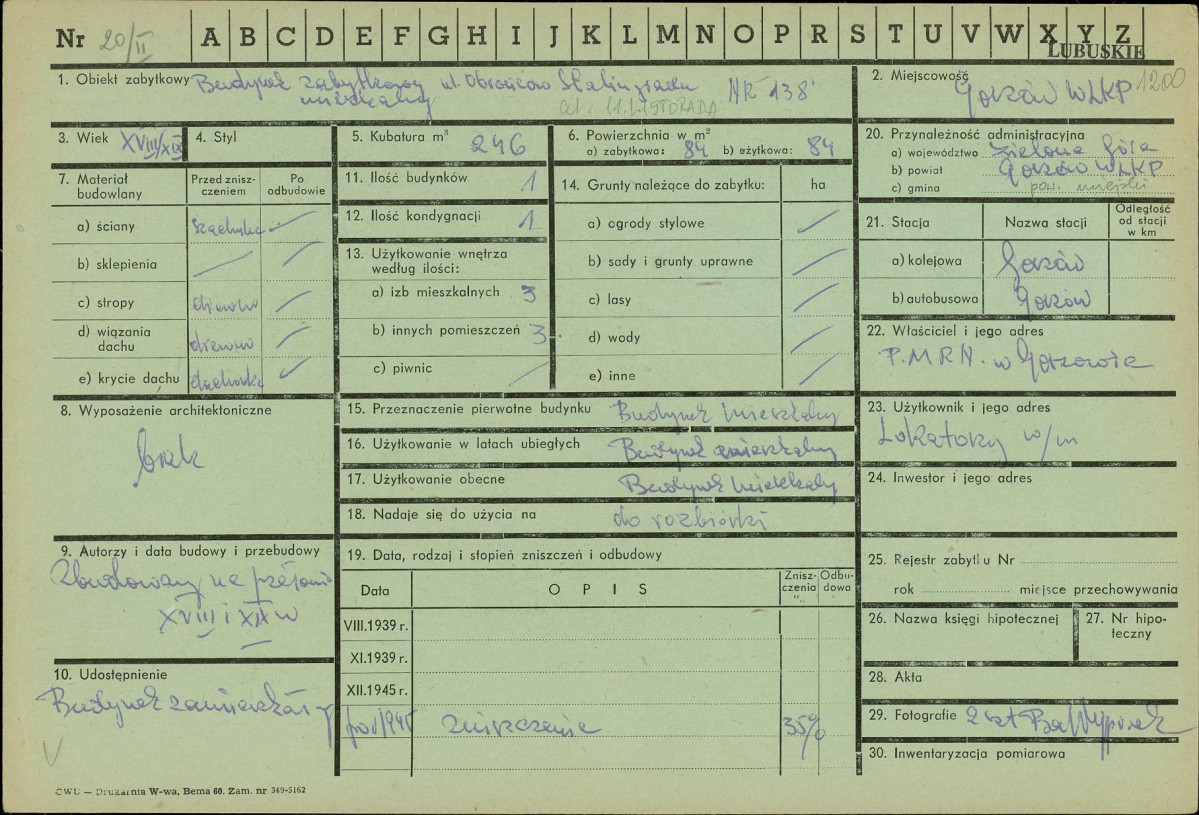 Nr 20/II A B C D E F G H I J K L M N O P R S T U V W X Y Z
LUBUSKIE
1. Obiekt zabytkowy Budynek zabytkowy ul. Obrońców Stalingradu NR 138
mieszkalny ob. 11 LISTOPADA
2. Miejscowość Gorzów WLKP 1200
3. Wiek XVIII/XIX
4. Styl
5. Kubatura m³ 246
6. Powierzchnia w m²
a) zabytkowa: 84 b) użytkowa: 84
7. Materiał budowlany
Przed zniszczeniem
Po odbudowie
a) ściany
b) sklepienia
c) stropy drewno
d) wiązania dachu drewno
e) krycie dachu dachówka
11. Ilość budynków 1
12. Ilość kondygnacji 1
13. Użytkowanie wnętrza według ilości:
a) izb mieszkalnych 3
b) innych pomieszczeń 3
c) piwnic
14. Grunty należące do zabytku: ha
a) ogrody stylowe
b) sady i grunty uprawne
c) lasy
d) wody
e) inne
20. Przynależność administracyjna
a) województwo Zielona Góra
b) powiat Gorzów WLKP
c) gmina pow. miejski
21. Stacja Nazwa stacji Odległość od stacji w km
a) kolejowa Gorzów
b) autobusowa Gorzów
22. Właściciel i jego adres
P.M.R.N. w Gorzowie
8. Wyposażenie architektoniczne
brak
15. Przeznaczenie pierwotne budynku Budynek mieszkalny
16. Użytkowanie w latach ubiegłych Budynek mieszkalny
17. Użytkowanie obecne Budynek mieszkalny
18. Nadaje się do użycia na do rozbiórki
23. Użytkownik i jego adres
Lokatorzy w/m
24. Inwestor i jego adres
9. Autorzy i data budowy i przebudowy
Zbudowany na przełomie
XVIII i XIX w
10. Udostępnienie
Budynek zamieszkały
19. Data, rodzaj i stopień zniszczeń i odbudowy
Data OPIS Zniszczenia % Odbudowa
VIII.1939 r.
XI.1939 r.
XII.1945 r.
po r/1945 zniszczenie 35%
25. Rejestr zabytku Nr
rok miejsce przechowywania
26. Nazwa księgi hipotecznej
27. Nr hipoteczny
28. Akta
29. Fotografie 2 szt
30. Inwentaryzacja pomiarowa
CWD — Drukarnia W-wa, Bema 60. Zam. nr 349-5162